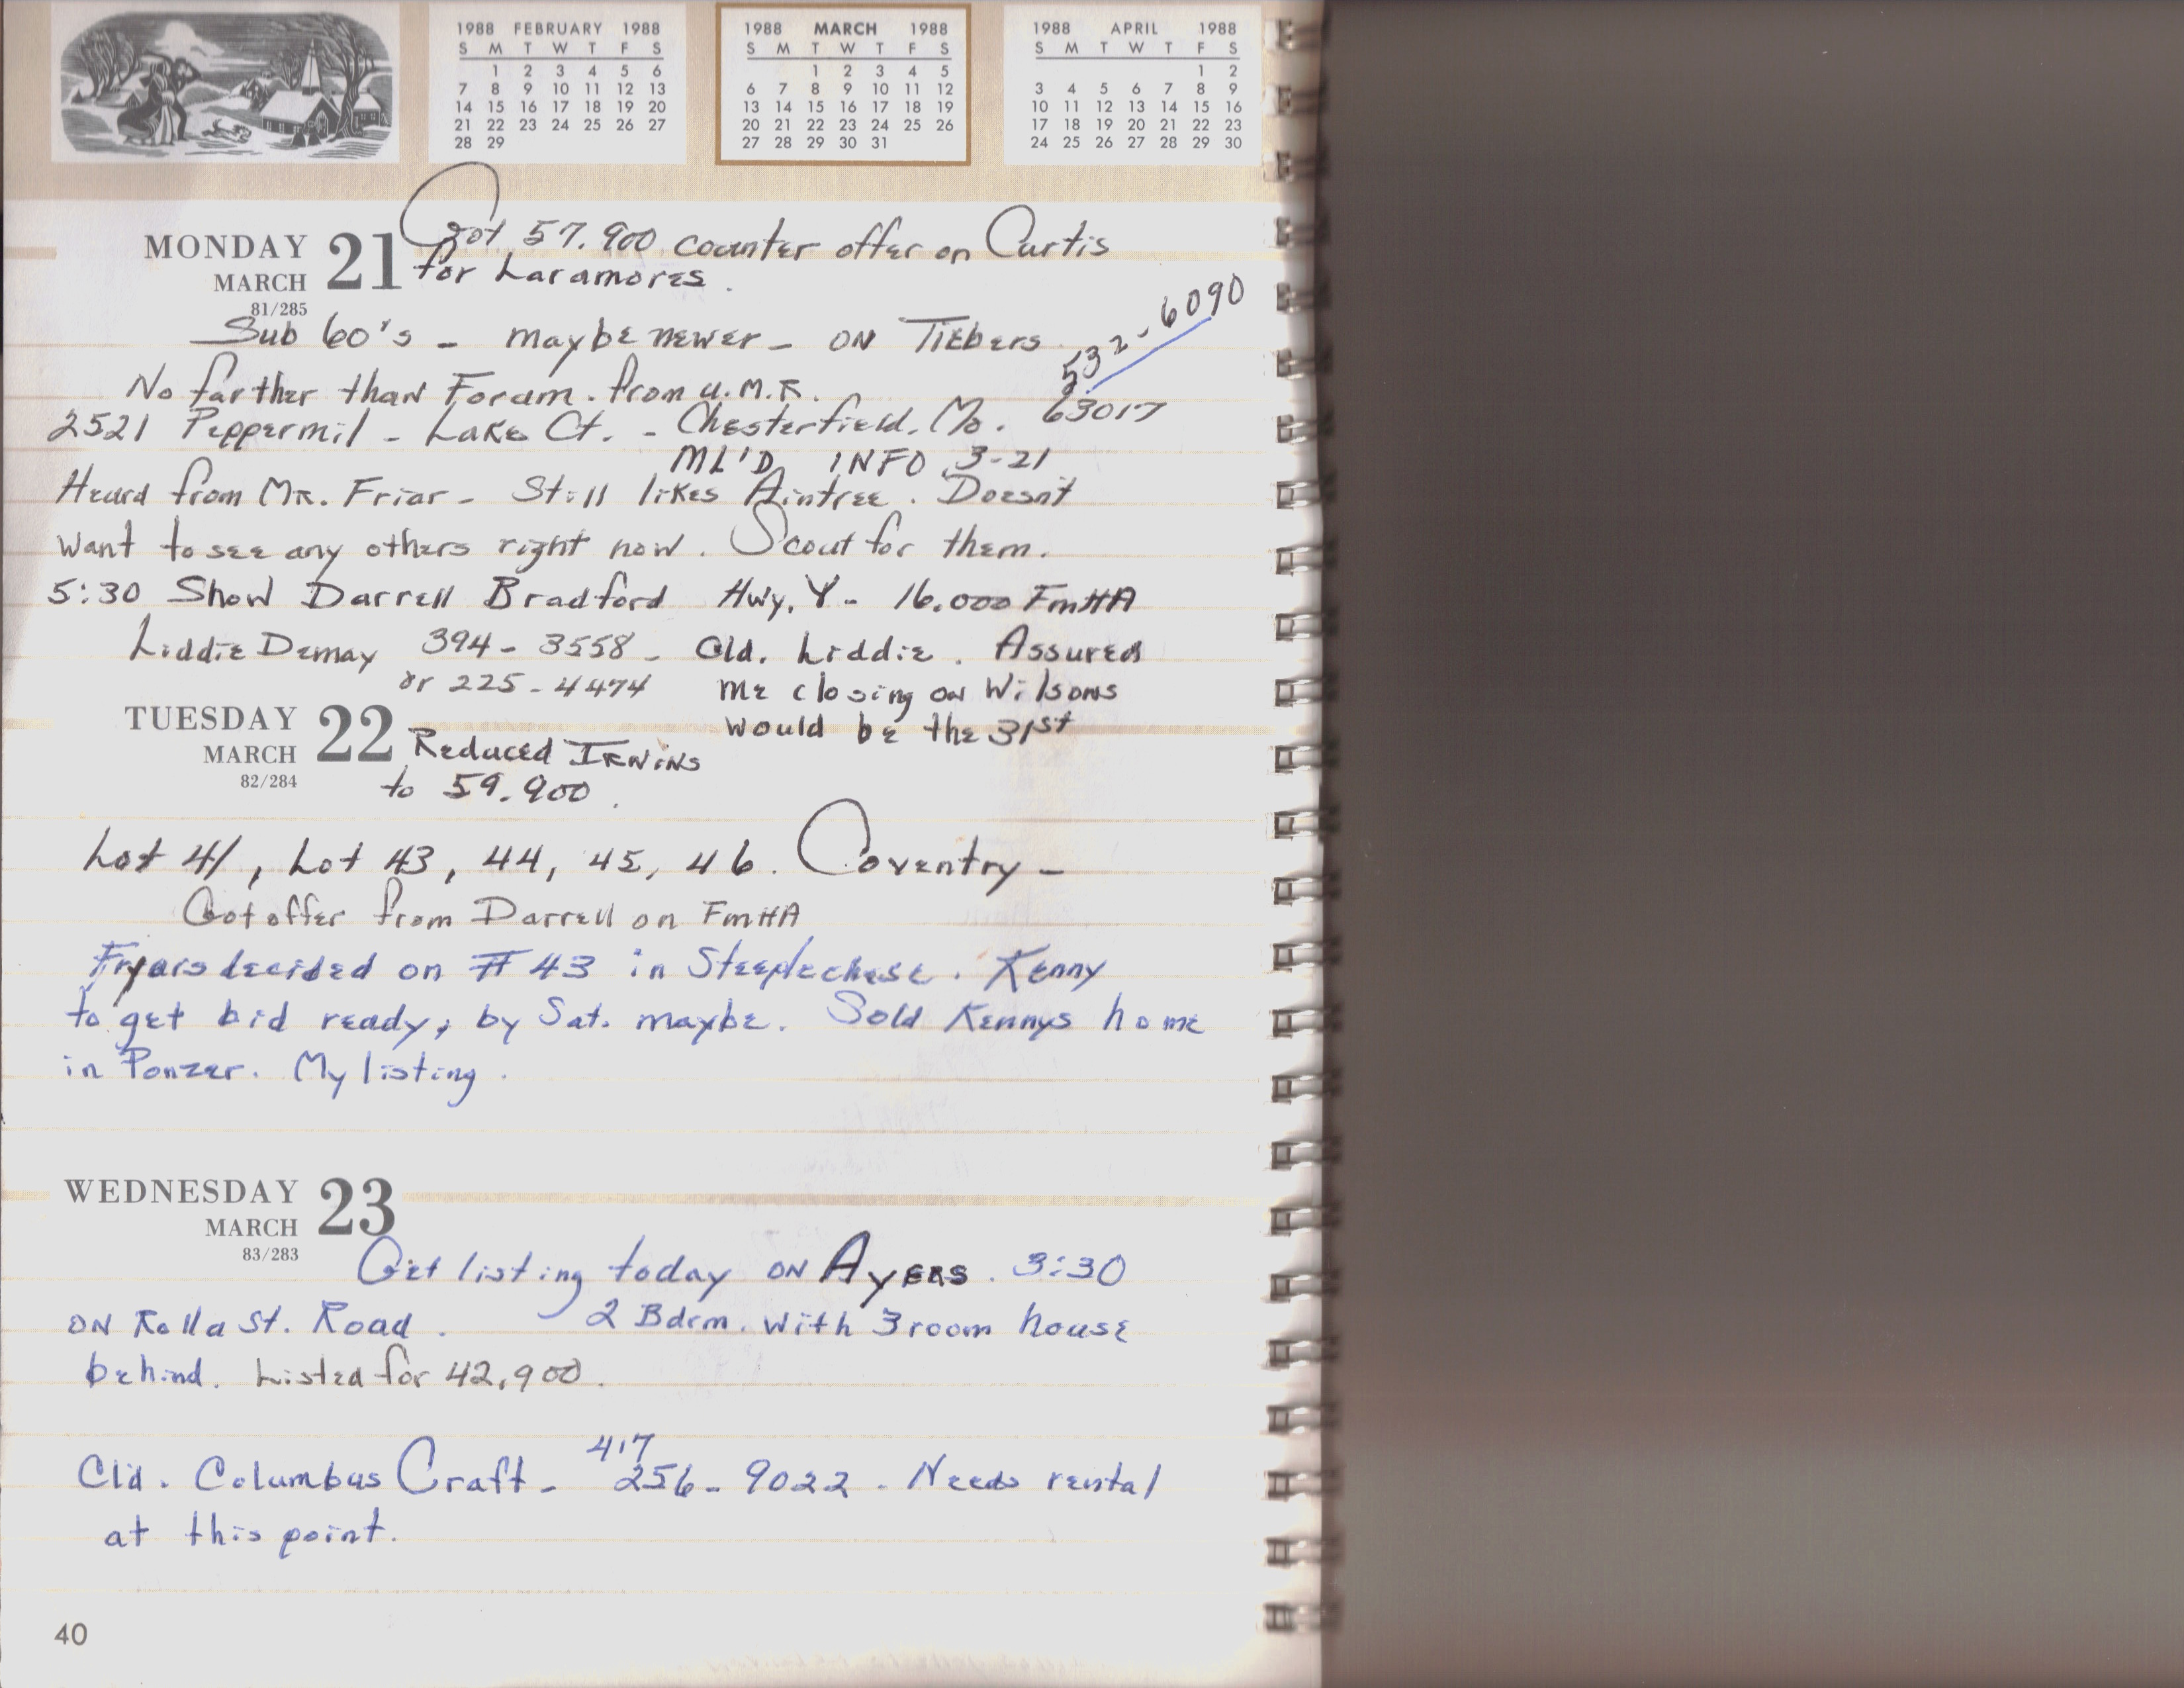 1988 FEBRUARY 1988
S M T W T F S
1 2 3 4 5 6
7 8 9 10 11 12 13
14 15 16 17 18 19 20
21 22 23 24 25 26 27
28 29
1988 MARCH 1988
S M T W T F S
1 2 3 4 5
6 7 8 9 10 11 12
13 14 15 16 17 18 19
20 21 22 23 24 25 26
27 28 29 30 31
1988 APRIL 1988
S M T W T F S
1 2
3 4 5 6 7 8 9
10 11 12 13 14 15 16
17 18 19 20 21 22 23
24 25 26 27 28 29 30
MONDAY 21
MARCH
81/285
Got 57.900 counter offer on Curtis
for Laramores.
Sub 60's - maybe newer - ON Tiebers
532-6090
No farther than Forum. from U.M.R.
2521 Peppermil - Lake Ct. - Chesterfield, Mo. 63017
ML'D INFO 3-21
Heard from Mr. Friar - Still likes Aintree. Doesn't
want to see any others right now. Scout for them.
5:30 Show Darrell Bradford Hwy. Y - 16.000 FmHA
Liddie Demay 394-3558 - Cld. Liddie. Assured
or 225-4474 me closing on Wilsons
would be the 31st
TUESDAY 22
MARCH
82/284
Reduced Irwins
to 59.900.
Lot 41, Lot 43, 44, 45, 46. Coventry -
Got offer from Darrell on FmHA
Fryars decided on #43 in Steeplechase. Kenny
to get bid ready, by Sat. maybe. Sold Kennys home
in Ponzer. My listing.
WEDNESDAY 23
MARCH
83/283
Get listing today ON Ayers. 3:30
ON Rolla St. Road. 2 Bdrm. with 3 room house
behind. Listed for 42,900.
Cld. Columbus Craft - 417 256-9022. Needs rental
at this point.
40